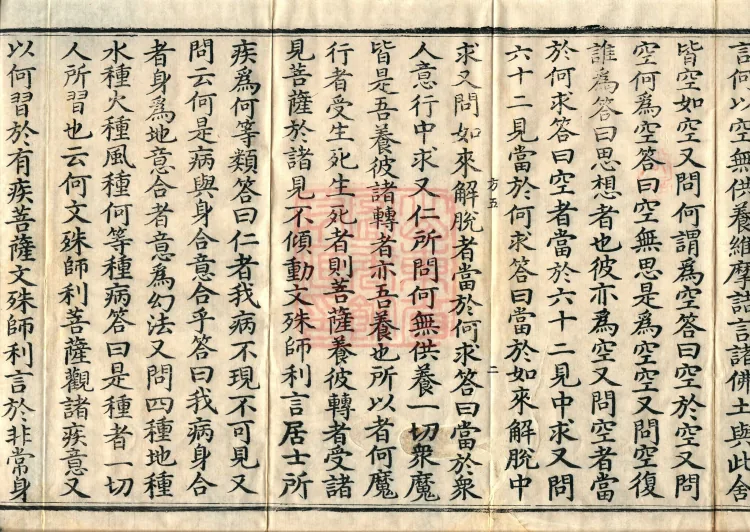 言何以空無供養維摩詰言諸佛土與此舍
皆空如空又問何謂為空答曰空於空又問
空何為空答曰空無思是為空空又問空復
誰為答曰思想者也彼亦為空又問空者當
於何求答曰空者當於六十二見中求又問
六十二見當於何求答曰當於如來解脫中
方五
二
求又問如來解脫者當於何求答曰當於衆
人意行中求又仁所問何無供養一切衆魔
皆是吾養彼諸轉者亦吾養也所以者何魔
行者受生死生死者則菩薩養彼轉者受諸
見菩薩於諸見不傾動文殊師利言居士所
疾為何等類答曰仁者我病不現不可見又
問云何是病與身合意合乎答曰我病身合
者身為地意合者意為幻法又問四種地種
水種火種風種何等種病答曰是種者一切
人所習也云何文殊師利菩薩觀諸疾意又
以何習於有疾菩薩文殊師利言於非常身